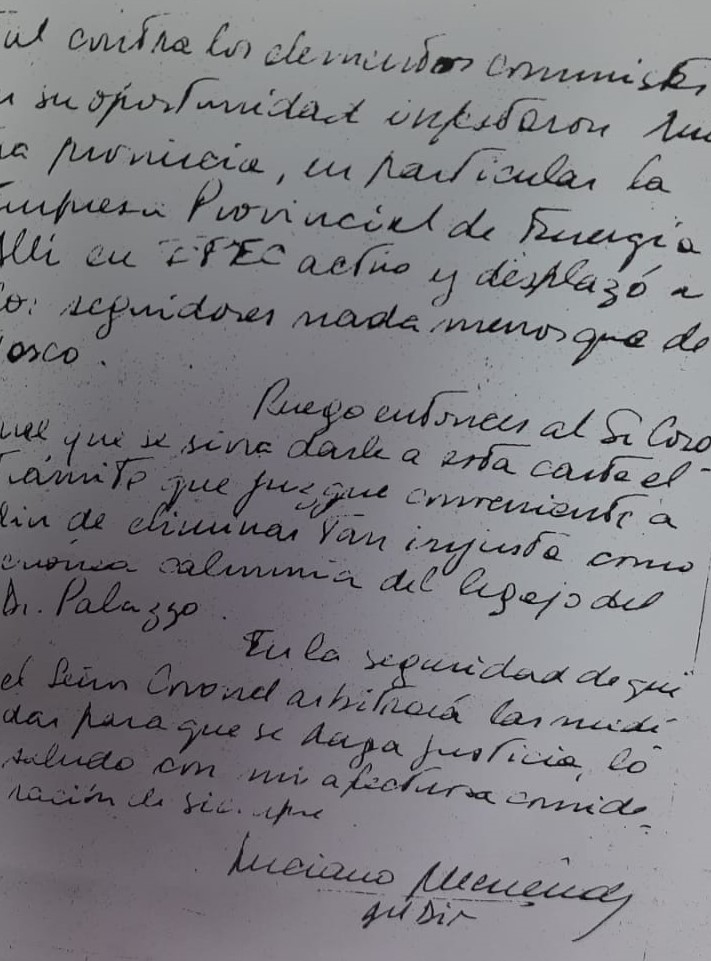 ul contra los elementos comunistas
n su oportunidad infestaron nu
ra provincia, en particular la
Empresa Provincial de Energía
Allí en EPEC actuo y desplazó a
los seguidores nada menos que de
Tosco.
Ruego entonces al Sr Coro
nel que se sirva darle a esta carta el
trámite que juzgue conveniente a
fin de eliminar tan injusta como
calumnia del legajo del
Dr. Palazzo.
En la seguridad de que
el Señor Coronel arbitrará las medi
das para que se haga justicia, lo
saludo con mi afectuosa conside
ración de siempre
Luciano Menéndez
Grl Div